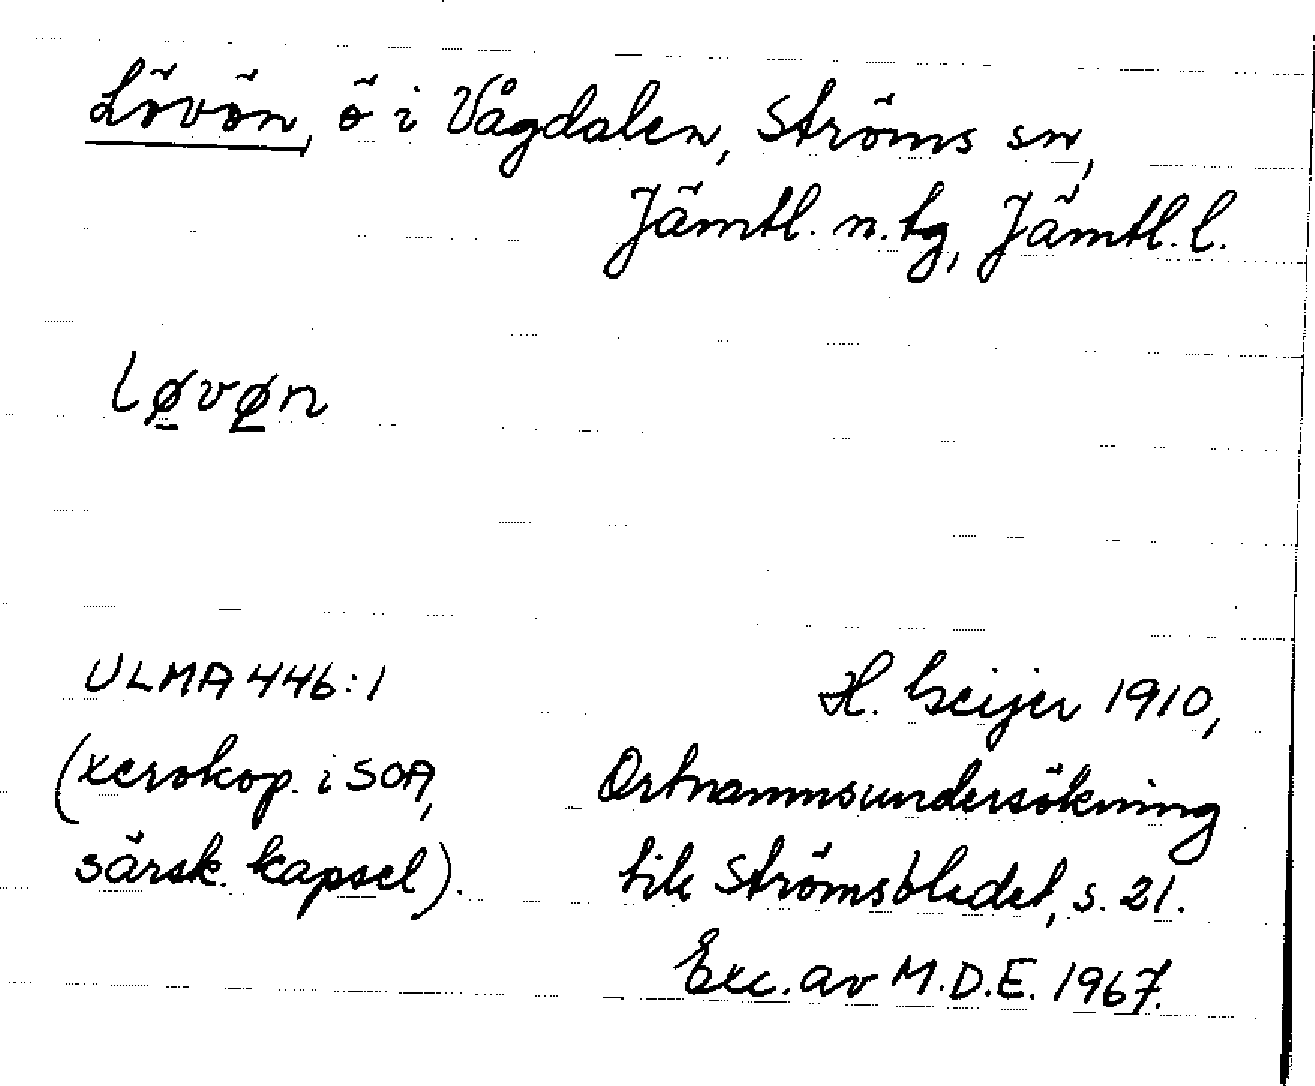 Lövön, ö i Vågdalen, Ströms sn,
Jämtl. n. tg, Jämtl. l.
lø̠vø̠n
ULMA 446:1
(xerokop. i SOA,
särsk. kapsel).
H. Geijer 1910,
Ortnamnsundersökning
till Strömsbladet, s. 21.
Exc. av M.D.E. 1967.